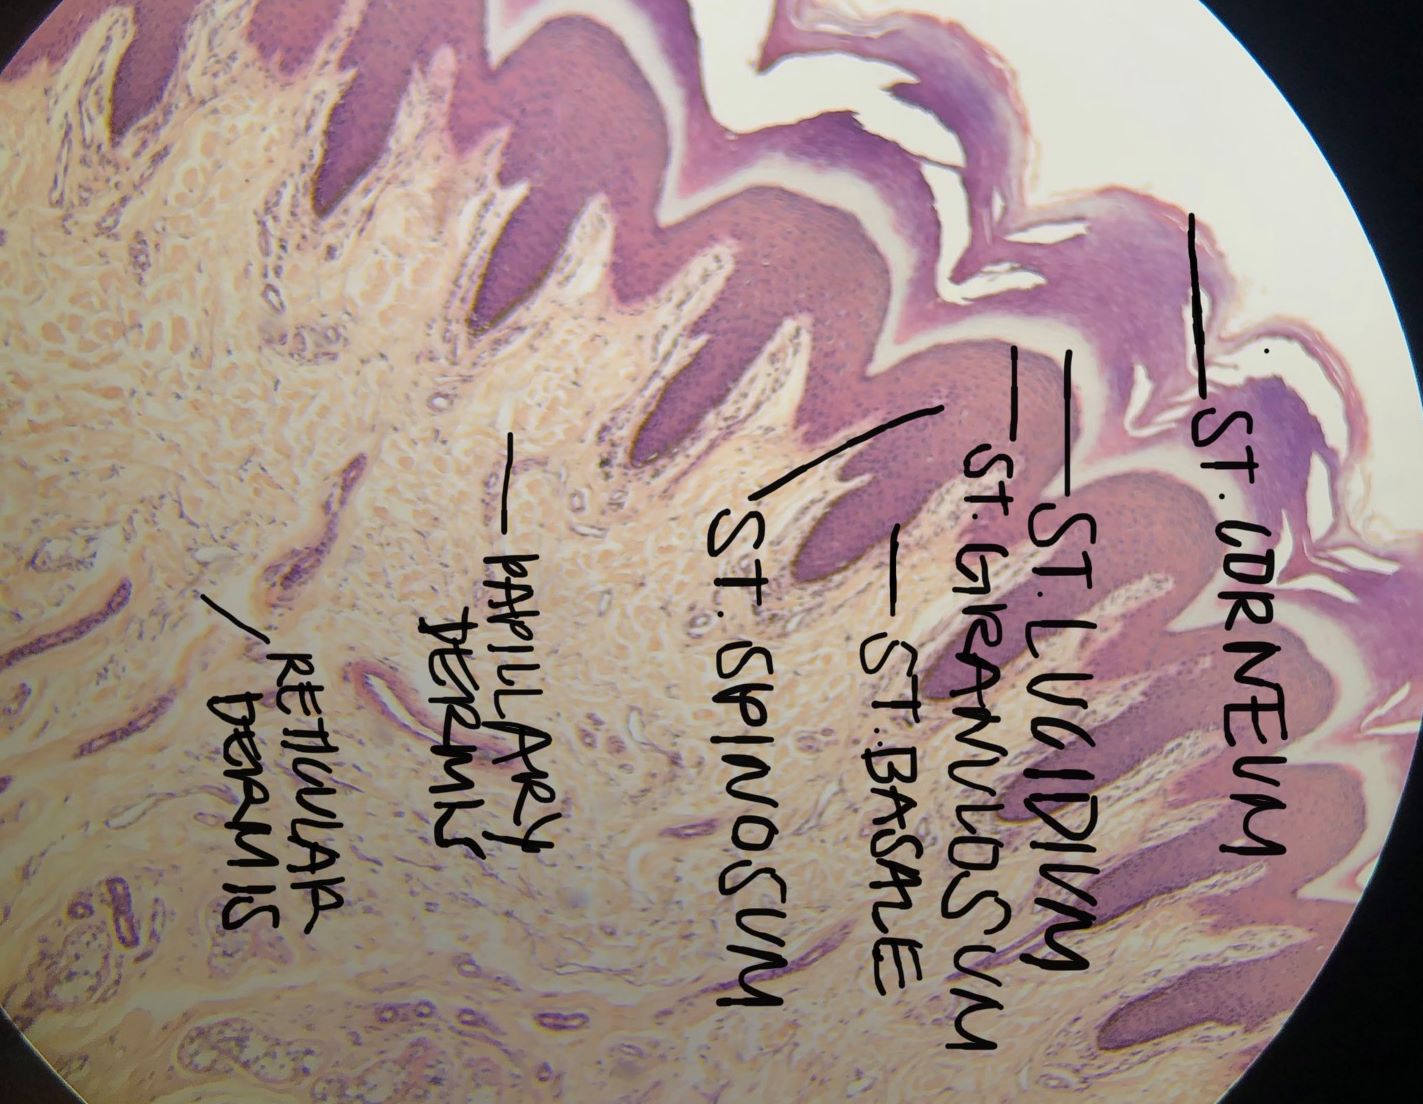 ST. CORNEUM
ST. LUCIDIUM
ST. GRANULOSUM
ST. BASALE
ST. SPINOSUM
PAPILLARY
DERMIS
RETICULAR
DERMIS